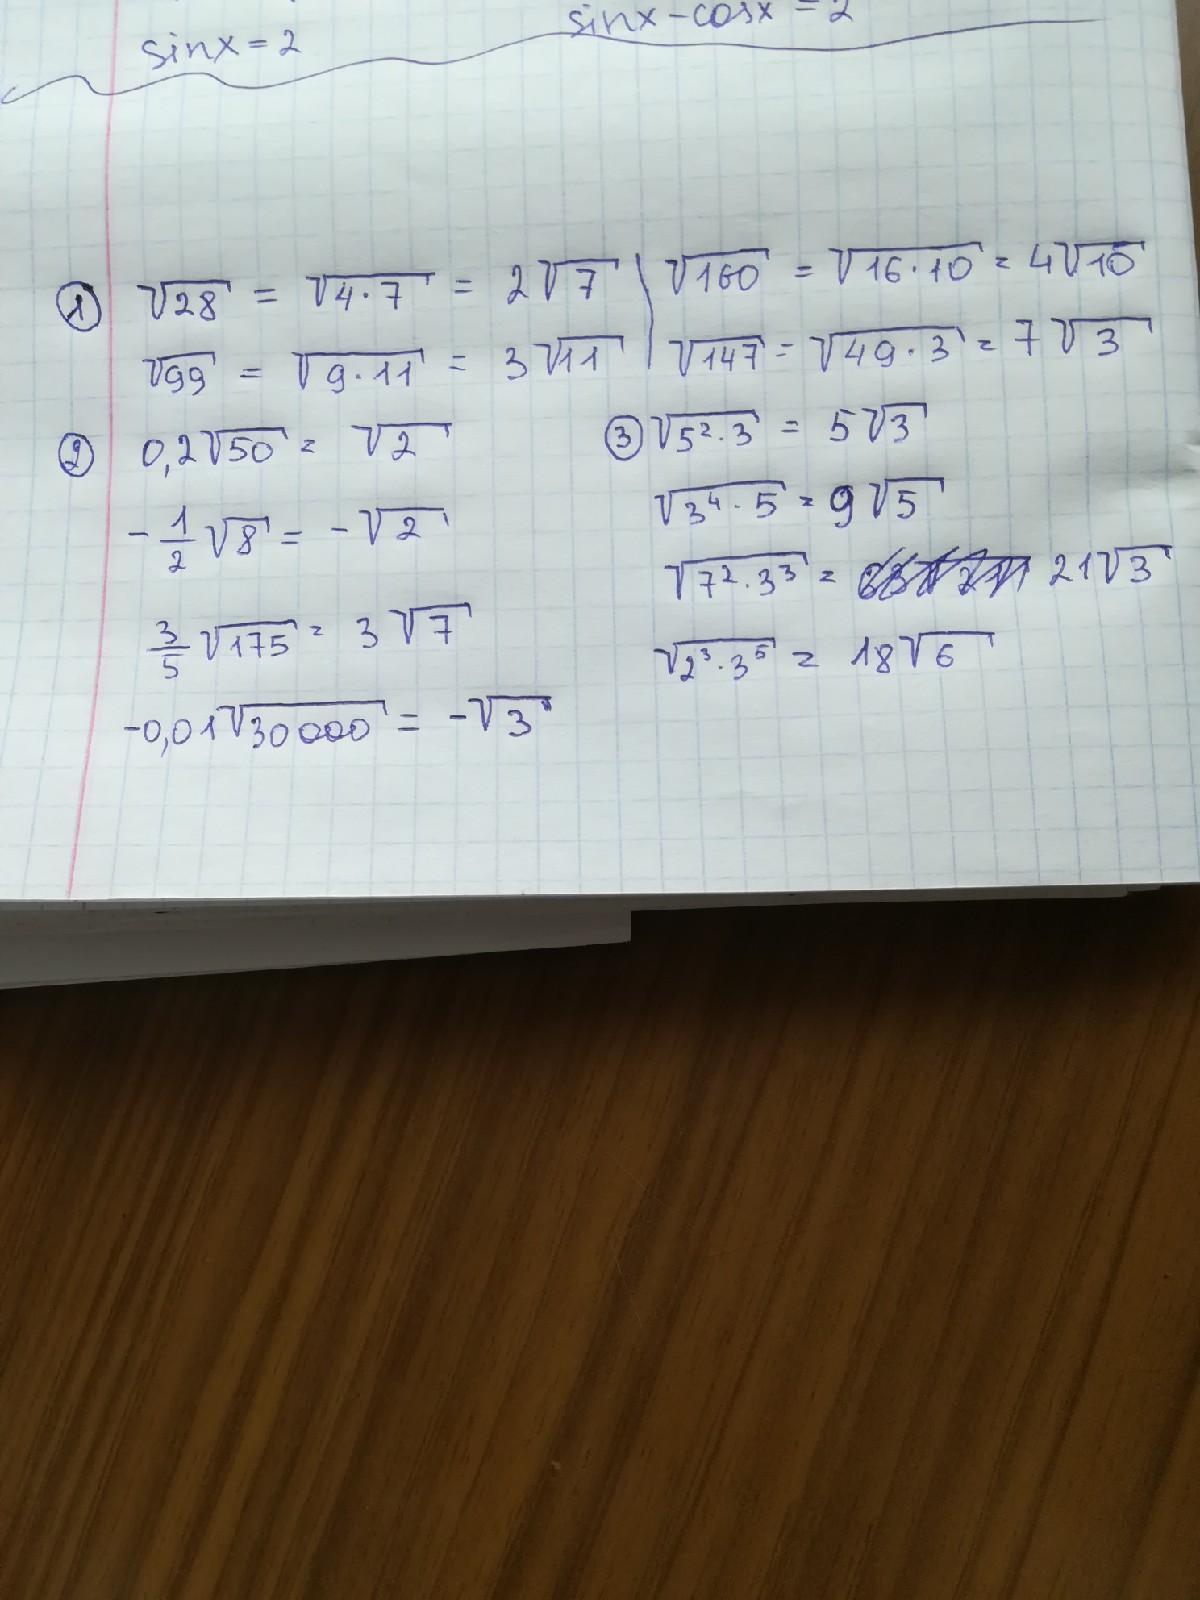 sinx = 2
sinx - cosx = 2
① √28 = √4·7 = 2√7 | √160 = √16·10 = 4√10
√99 = √9·11 = 3√11 | √147 = √49·3 = 7√3
② 0,2√50 = √2
-1/2√8 = -√2
3/5√175 = 3√7
-0,01√30000 = -√3
③ √5²·3 = 5√3
√3⁴·5 = 9√5
√7²·3³ = 21√3
√2³·3⁵ = 18√6